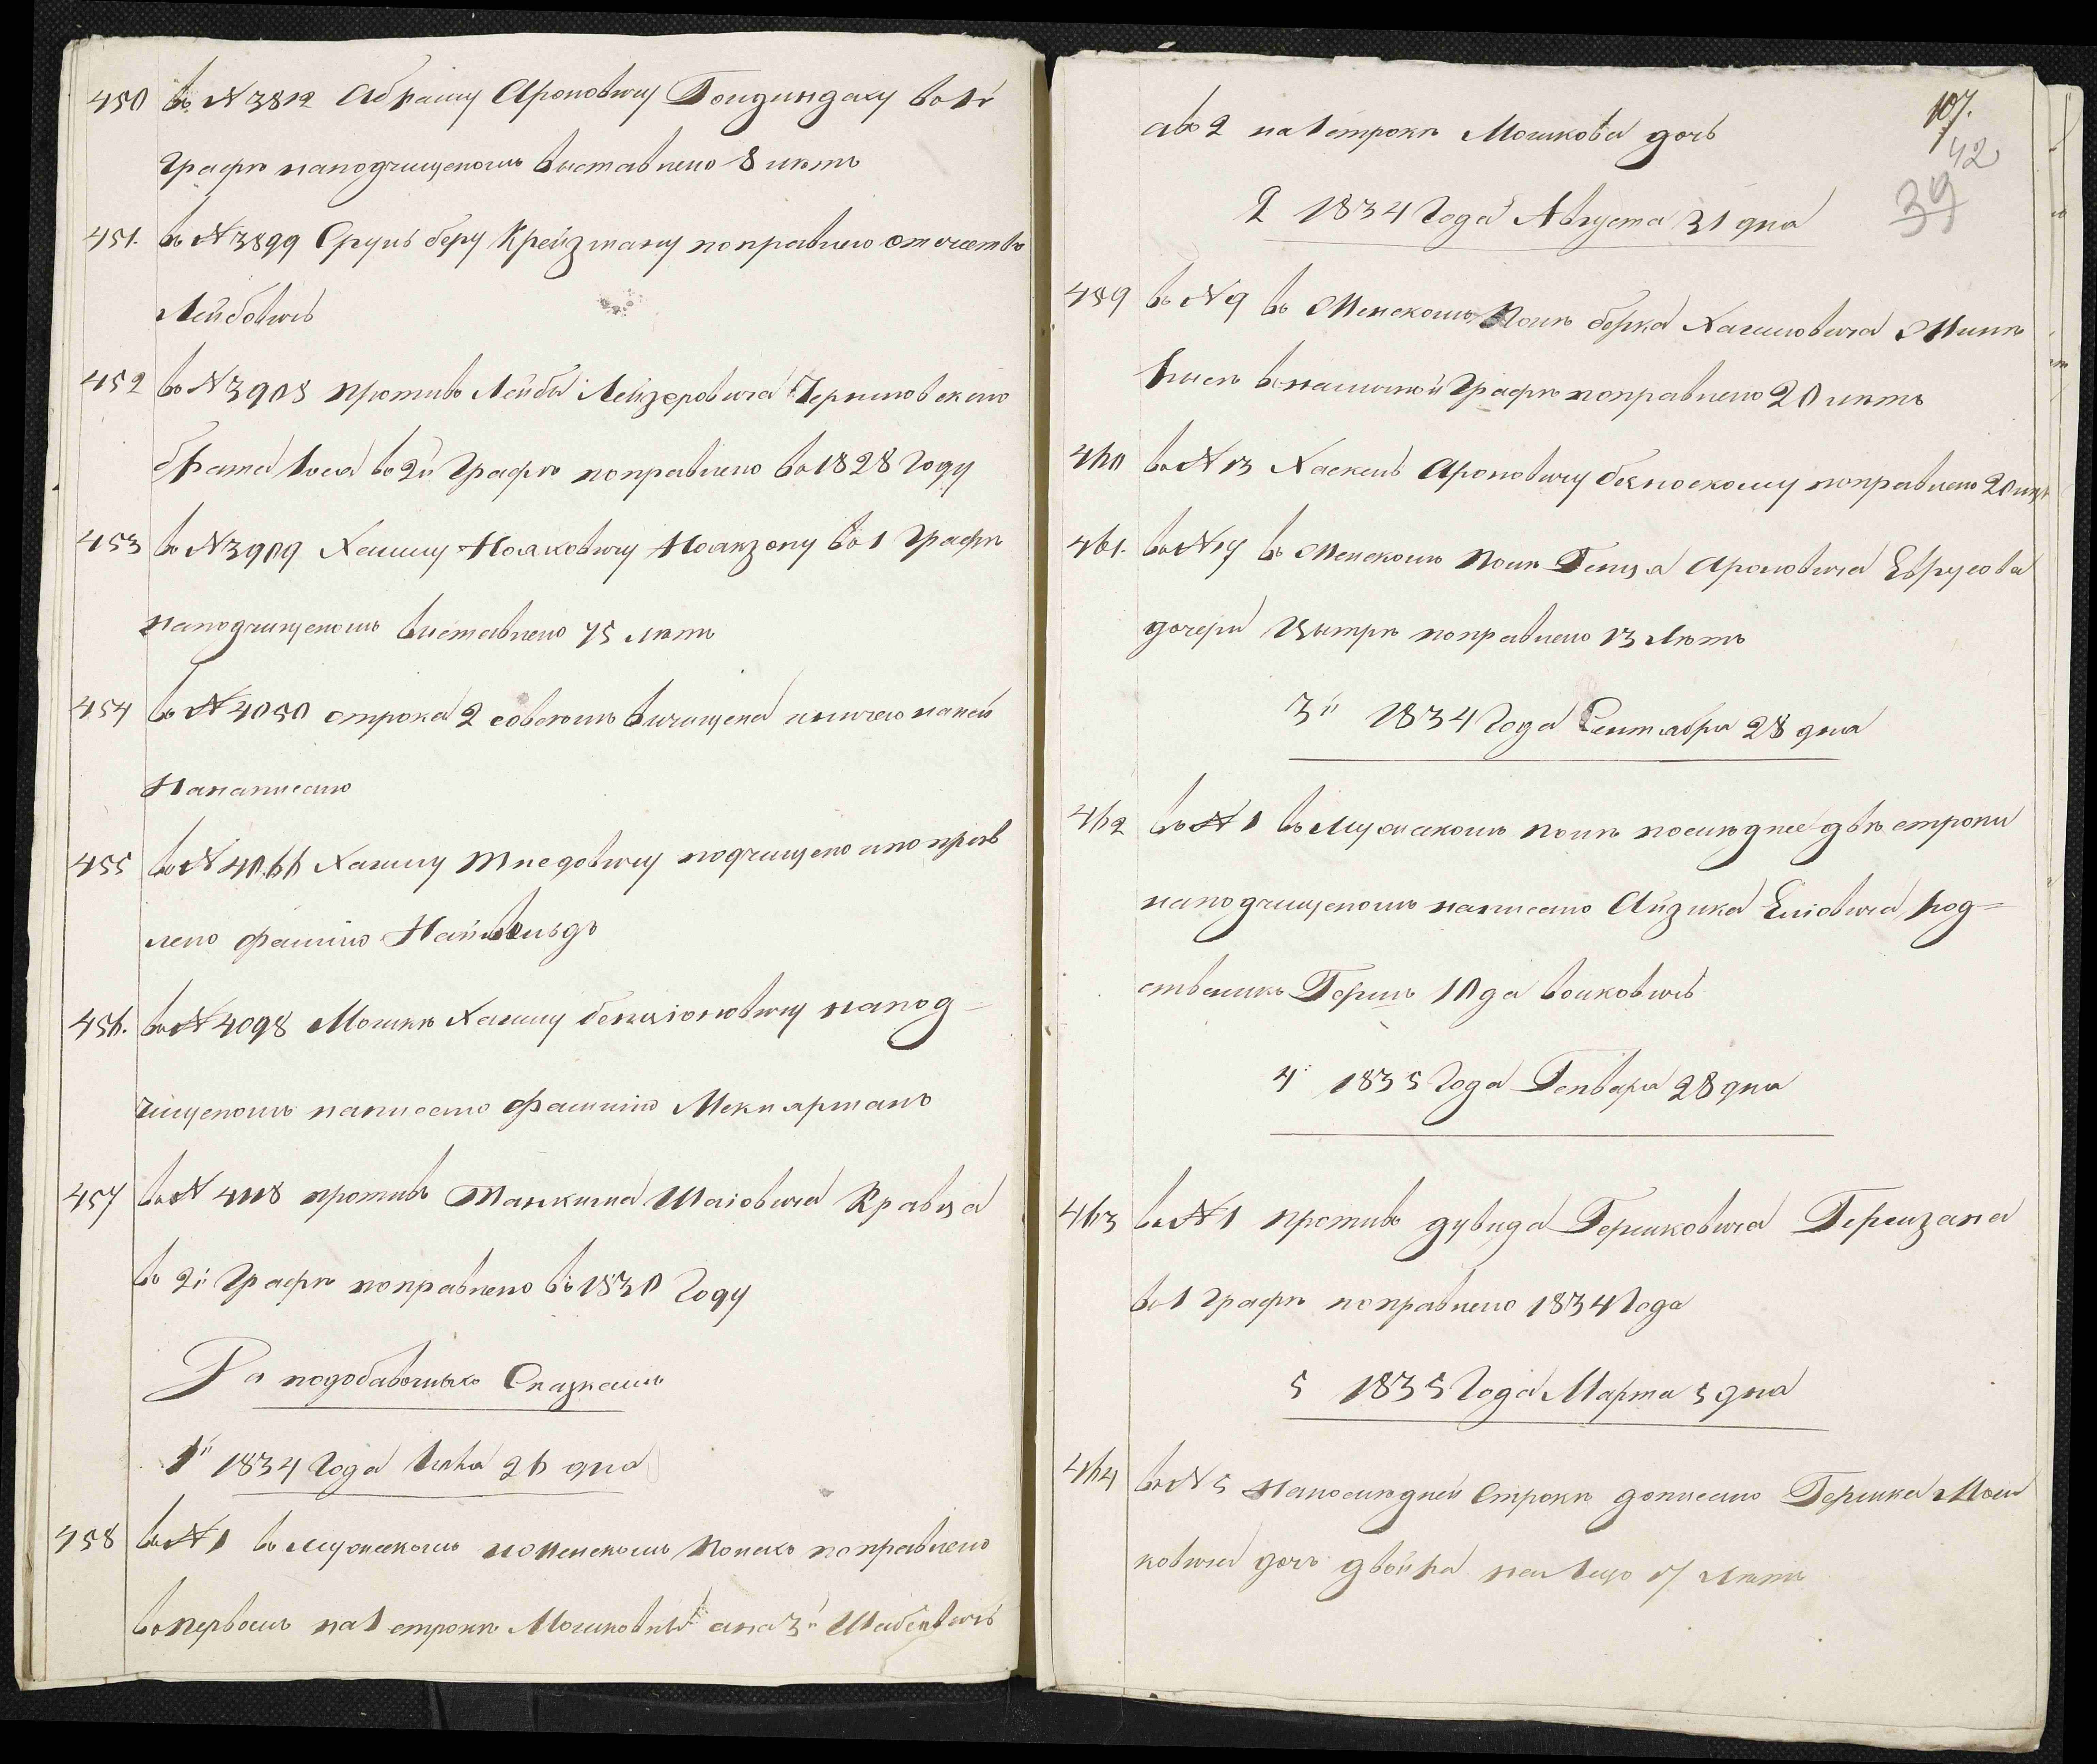 450 въ №3812 Абрашу Ароновичу въ 1й
Графѣ наподчищеномъ выставлено 8 лѣтъ
451. въ №3899 Сруль беру Крейзману поправлено отечество
Лейбовичъ
452 въ №3908 противъ Лейбы Лейзеровича
брата въ 2й Графѣ поправлено въ 1828 Году
453 въ №3909 Хаиму Ноаковичу Ноакзону въ 1 Графѣ
наподчищеномъ виставлено 75 лѣтъ
454 въ №4050 строка 2 совсемъ вичищена иничего наней
Ненаписано
455 въ №4066 Хаиму подчищено ипоправ
лено фамилію
456. въ №4098 Мошкѣ Хаиму бенціоновичу напод=
чищеномъ написано фамилію
457 въ № 4118 противъ Шаіовича Кравца
въ 2й Графѣ поправлено въ 1830 Году
По подобавочнымъ Сказкамъ
1й 1834 Года 26 дня
458 въ №1 въ мужескомъ иженскомъ Полахъ поправлено
впервомъ на 1 строкѣ ана 3й
аво 2 на 1 строкѣ Мошкова дочь
107.
42
39
2 1834 Года Августа 31 дня
459 въ №9 въ Женскомъ Полѣ берка Хаимовича
вналичной Графѣ поправлено 20 лѣтъ
460 въ №13 Хаскель Ароновичу поправлено 20 лѣтъ
461. въ №17 въ Женскомъ Полѣ Ароновича
дочери Цытрѣ поправлено 13 Лѣтъ
3й 1834 Года Сентября 28 дня
462 въ №1 въ Мужескомъ полѣ последнее двѣ строки
наподчищеномъ написано Айзика Еліовича род=
ственикъ Гершъ Волковичъ
4й 1835 Года Генваря 28 дня
463 въ №1 противъ дувида Гершковича
въ 1 Графѣ поправлено 1834 Года
5 1835 Года Марта 5 дня
464 въ №5 Напоследней Строкѣ дописано Гершка Мош
ковича дочь двойра 17 лѣтъ